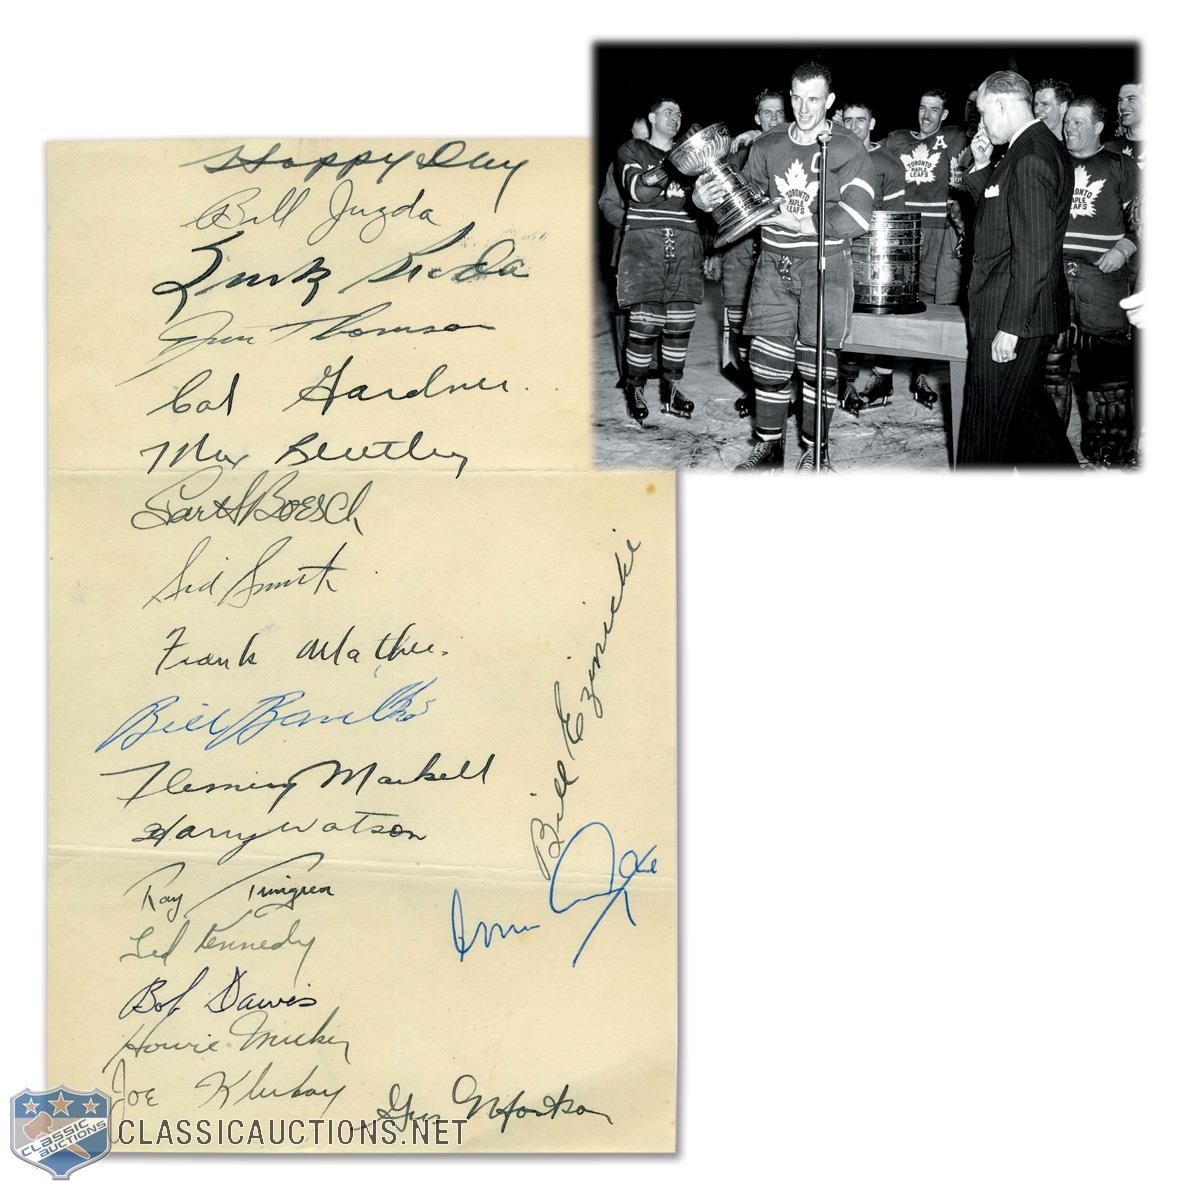 Happy Day
Bill Juzda
Turk Broda
Jim Thomson
Cal Gardner
Max Bentley
Garth Boesch
Sid Smith
Frank Mathers
Bill Barilko
Fleming Mackell
Harry Watson
Ray Timgren
Ted Kennedy
Bob Dawes
Howie Meeker
Joe Klukay
Gus Mortson
Bill Ezinicki
C
A
TORONTO
MAPLE
LEAFS
TORONTO
MAPLE
LEAFS
TORONTO
MAPLE
LEAFS
CLASSIC
AUCTIONS
CLASSICAUCTIONS.NET